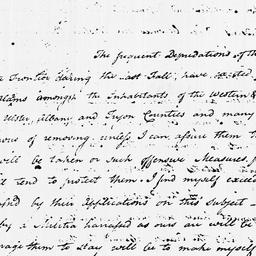 The frequent Depredations of th
Frontier during the last Fall, have excited
alarms amongst the Inhabitants of the Western &
Ulster, Albany and Tryon Counties and many
ous of removing unless I can assure them th
will be taken or such offensive Measures p
tend to protect them. I find myself excee
by their applications on this subject
by a Militia harrassed as ours are will be
rage them to stay will be to make myself